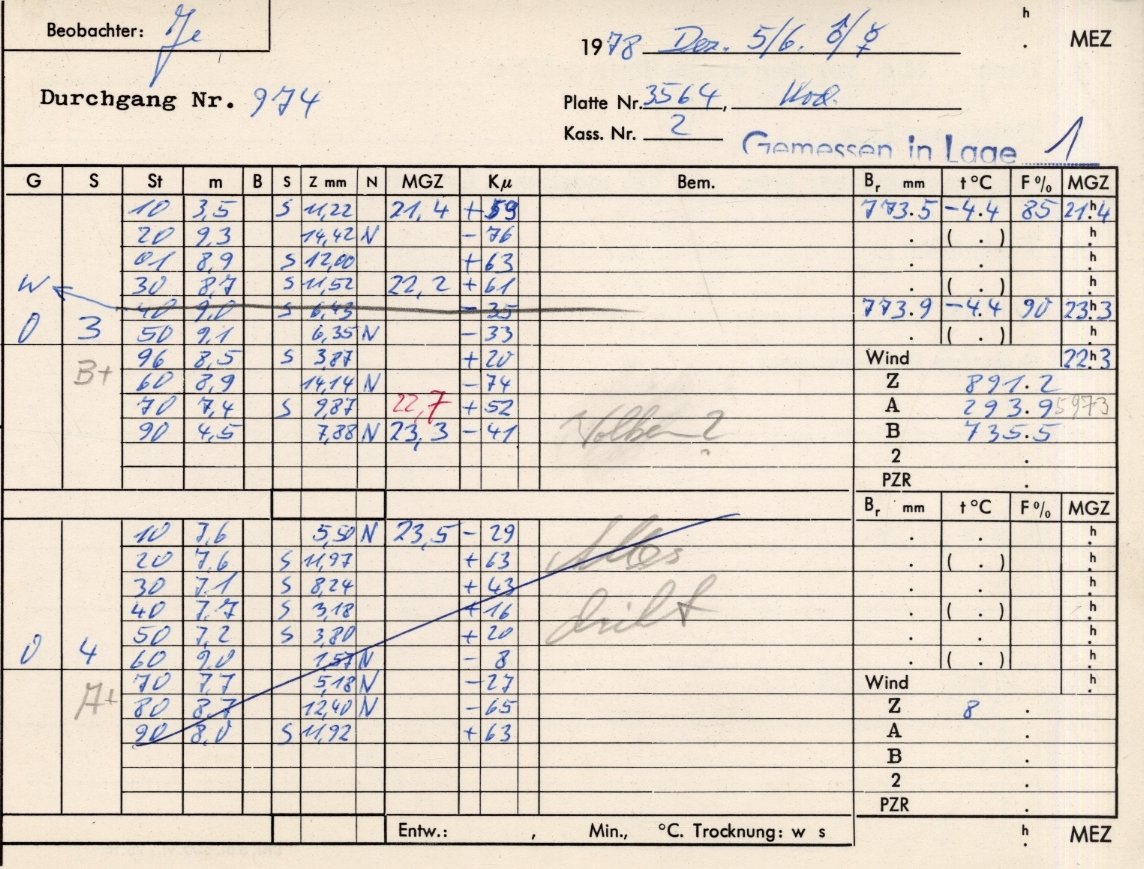 Beobachter: Je
h
1978 Dez. 5/6. ♂/☿ . MEZ
Durchgang Nr. 974
Platte Nr. 3564, Kod.
Kass. Nr. 2
Gemessen in Lage 1
G S St m B S Z mm N MGZ Kμ Bem. Br mm t°C F% MGZ
10 3,5 S 11,22 21,4 +59 773.5 -4.4 85 21h.4
20 9,3 14,42 N -76 . ( . ) h.
01 8,9 S 12,00 +63 . . h.
W 30 8,7 S 11,52 22,2 +61 . ( . ) h.
40 9,0 S 6,43 -35 773.9 -4.4 90 23h.3
0 3 50 9,1 6,35 N -33 . ( . ) h.
B+ 96 8,5 S 3,87 +20 Wind 22h.3
60 8,9 14,14 N -74 Z 891.2
70 7,4 S 9,87 22,7 +52 A 293.9 5973
90 4,5 7,88 N 23,3 -41 Wolken? B 735.5
2 .
PZR .
Br mm t°C F% MGZ
10 7,6 5,50 N 23,5 -29 . . h.
20 7,6 S 11,97 +63 Alles . ( . ) h.
30 7,1 S 8,24 +43 . . h.
40 7,7 S 3,18 +16 . ( . ) h.
50 7,2 S 3,80 +20 . . h.
0 4 60 9,0 1,57 N -8 . ( . ) h.
A+ 70 7,7 5,18 N -27 Wind h.
80 8,7 12,40 N -65 Z 8 .
90 8,0 S 11,92 +63 A .
B .
2 .
PZR .
Entw.: , Min., °C. Trocknung: w s h. MEZ